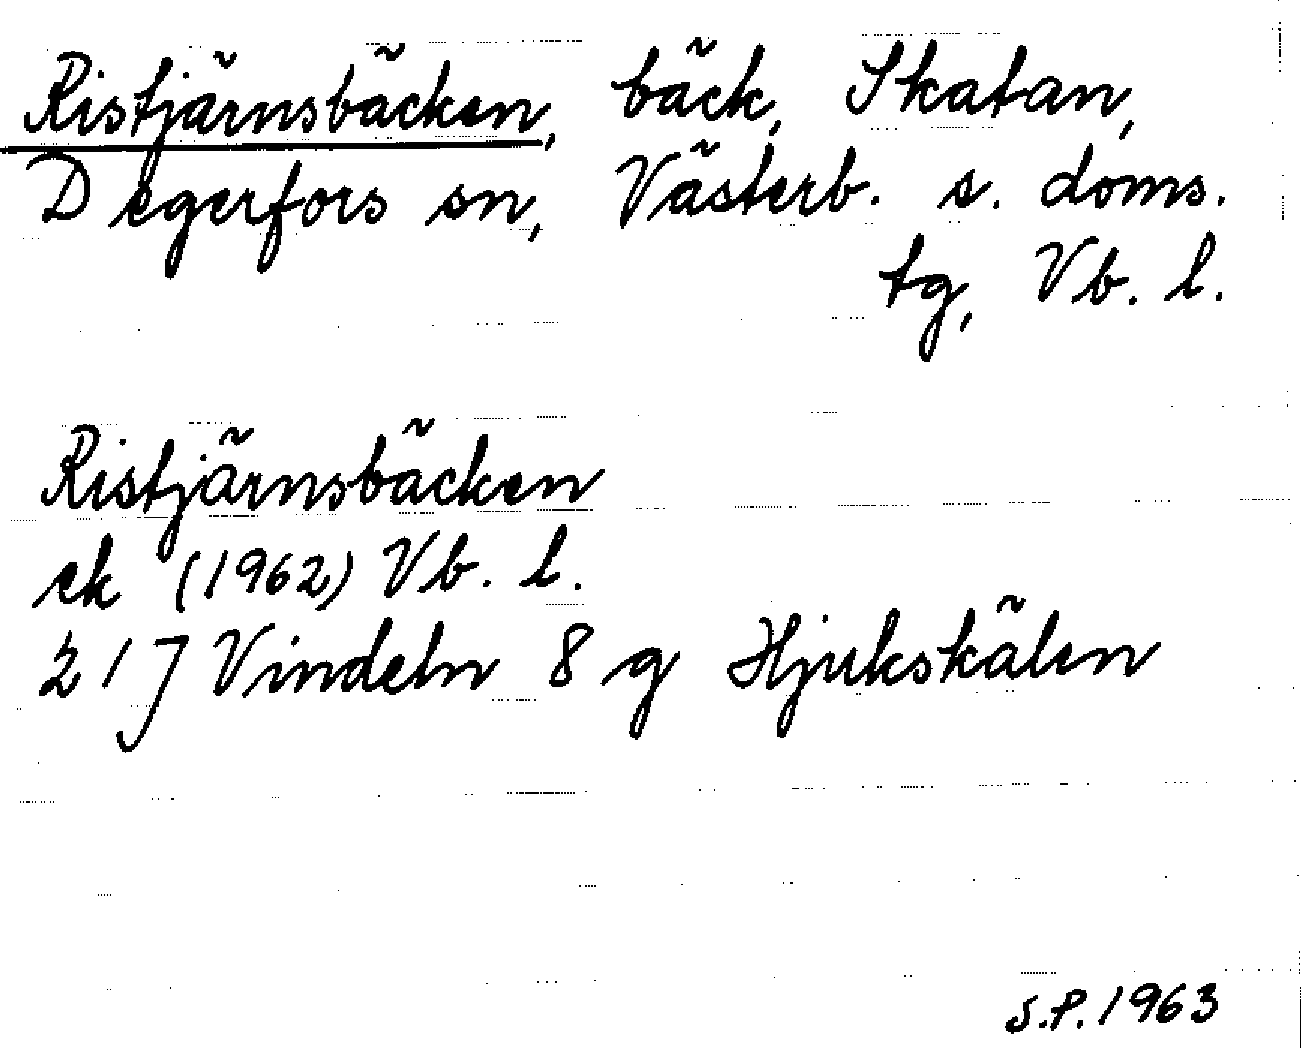 Ristjärnsbäcken, bäck, Skatan,
Degerfors sn, Västerb. s. doms.
tg, Vb. l.
Ristjärnsbäcken
ek (1962) Vb. l.
21J Vindeln 8 g Hjukskälen
S.P. 1963